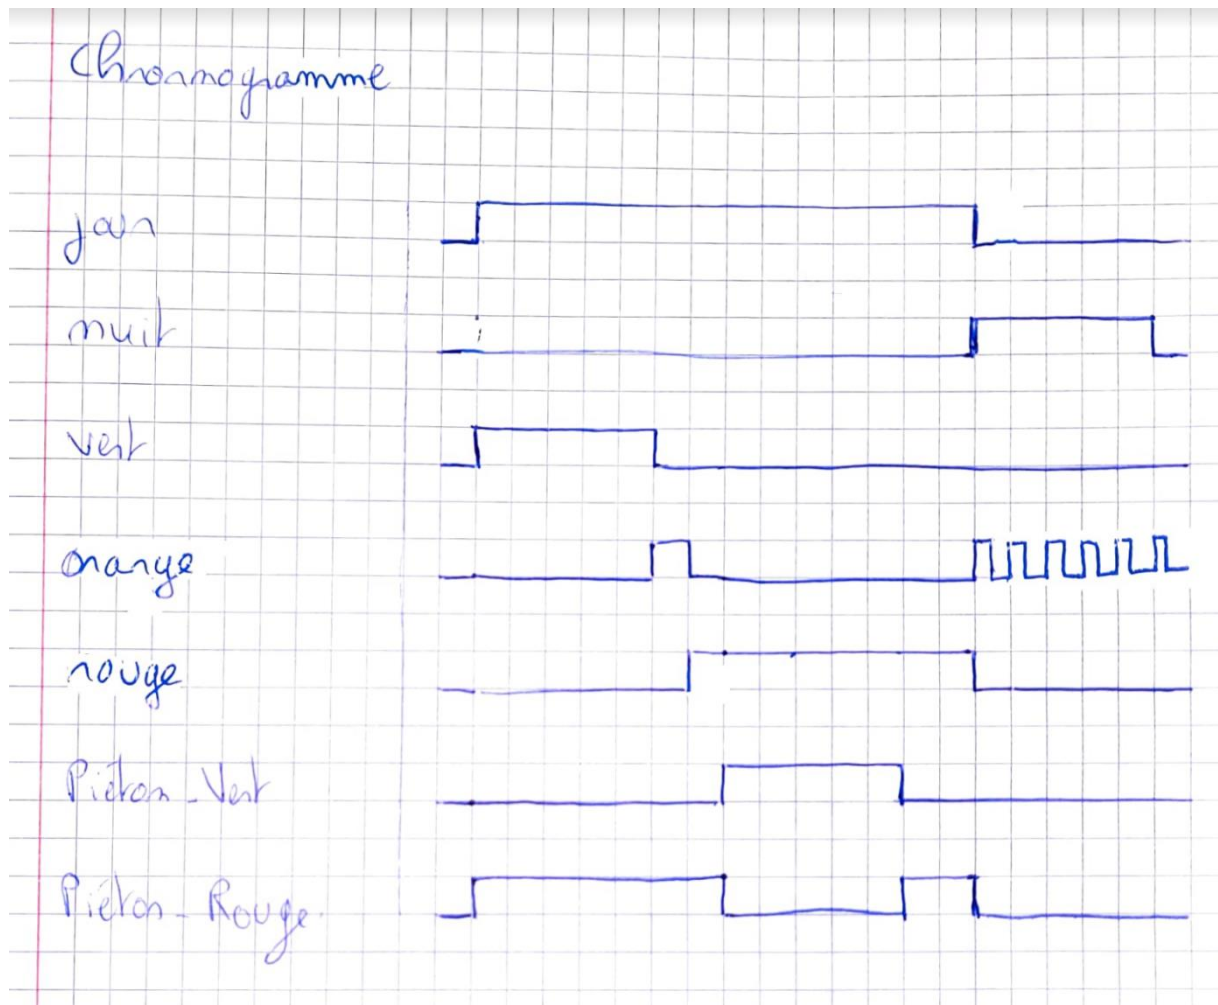 Chronmogramme
jour
nuit
vert
orange
rouge
Piéton_Vert
Piéton_Rouge.